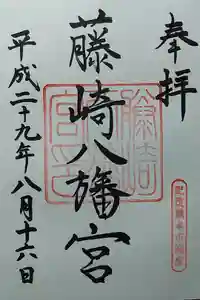 奉拝
藤崎八旛宮
平成二十九年八月十六日